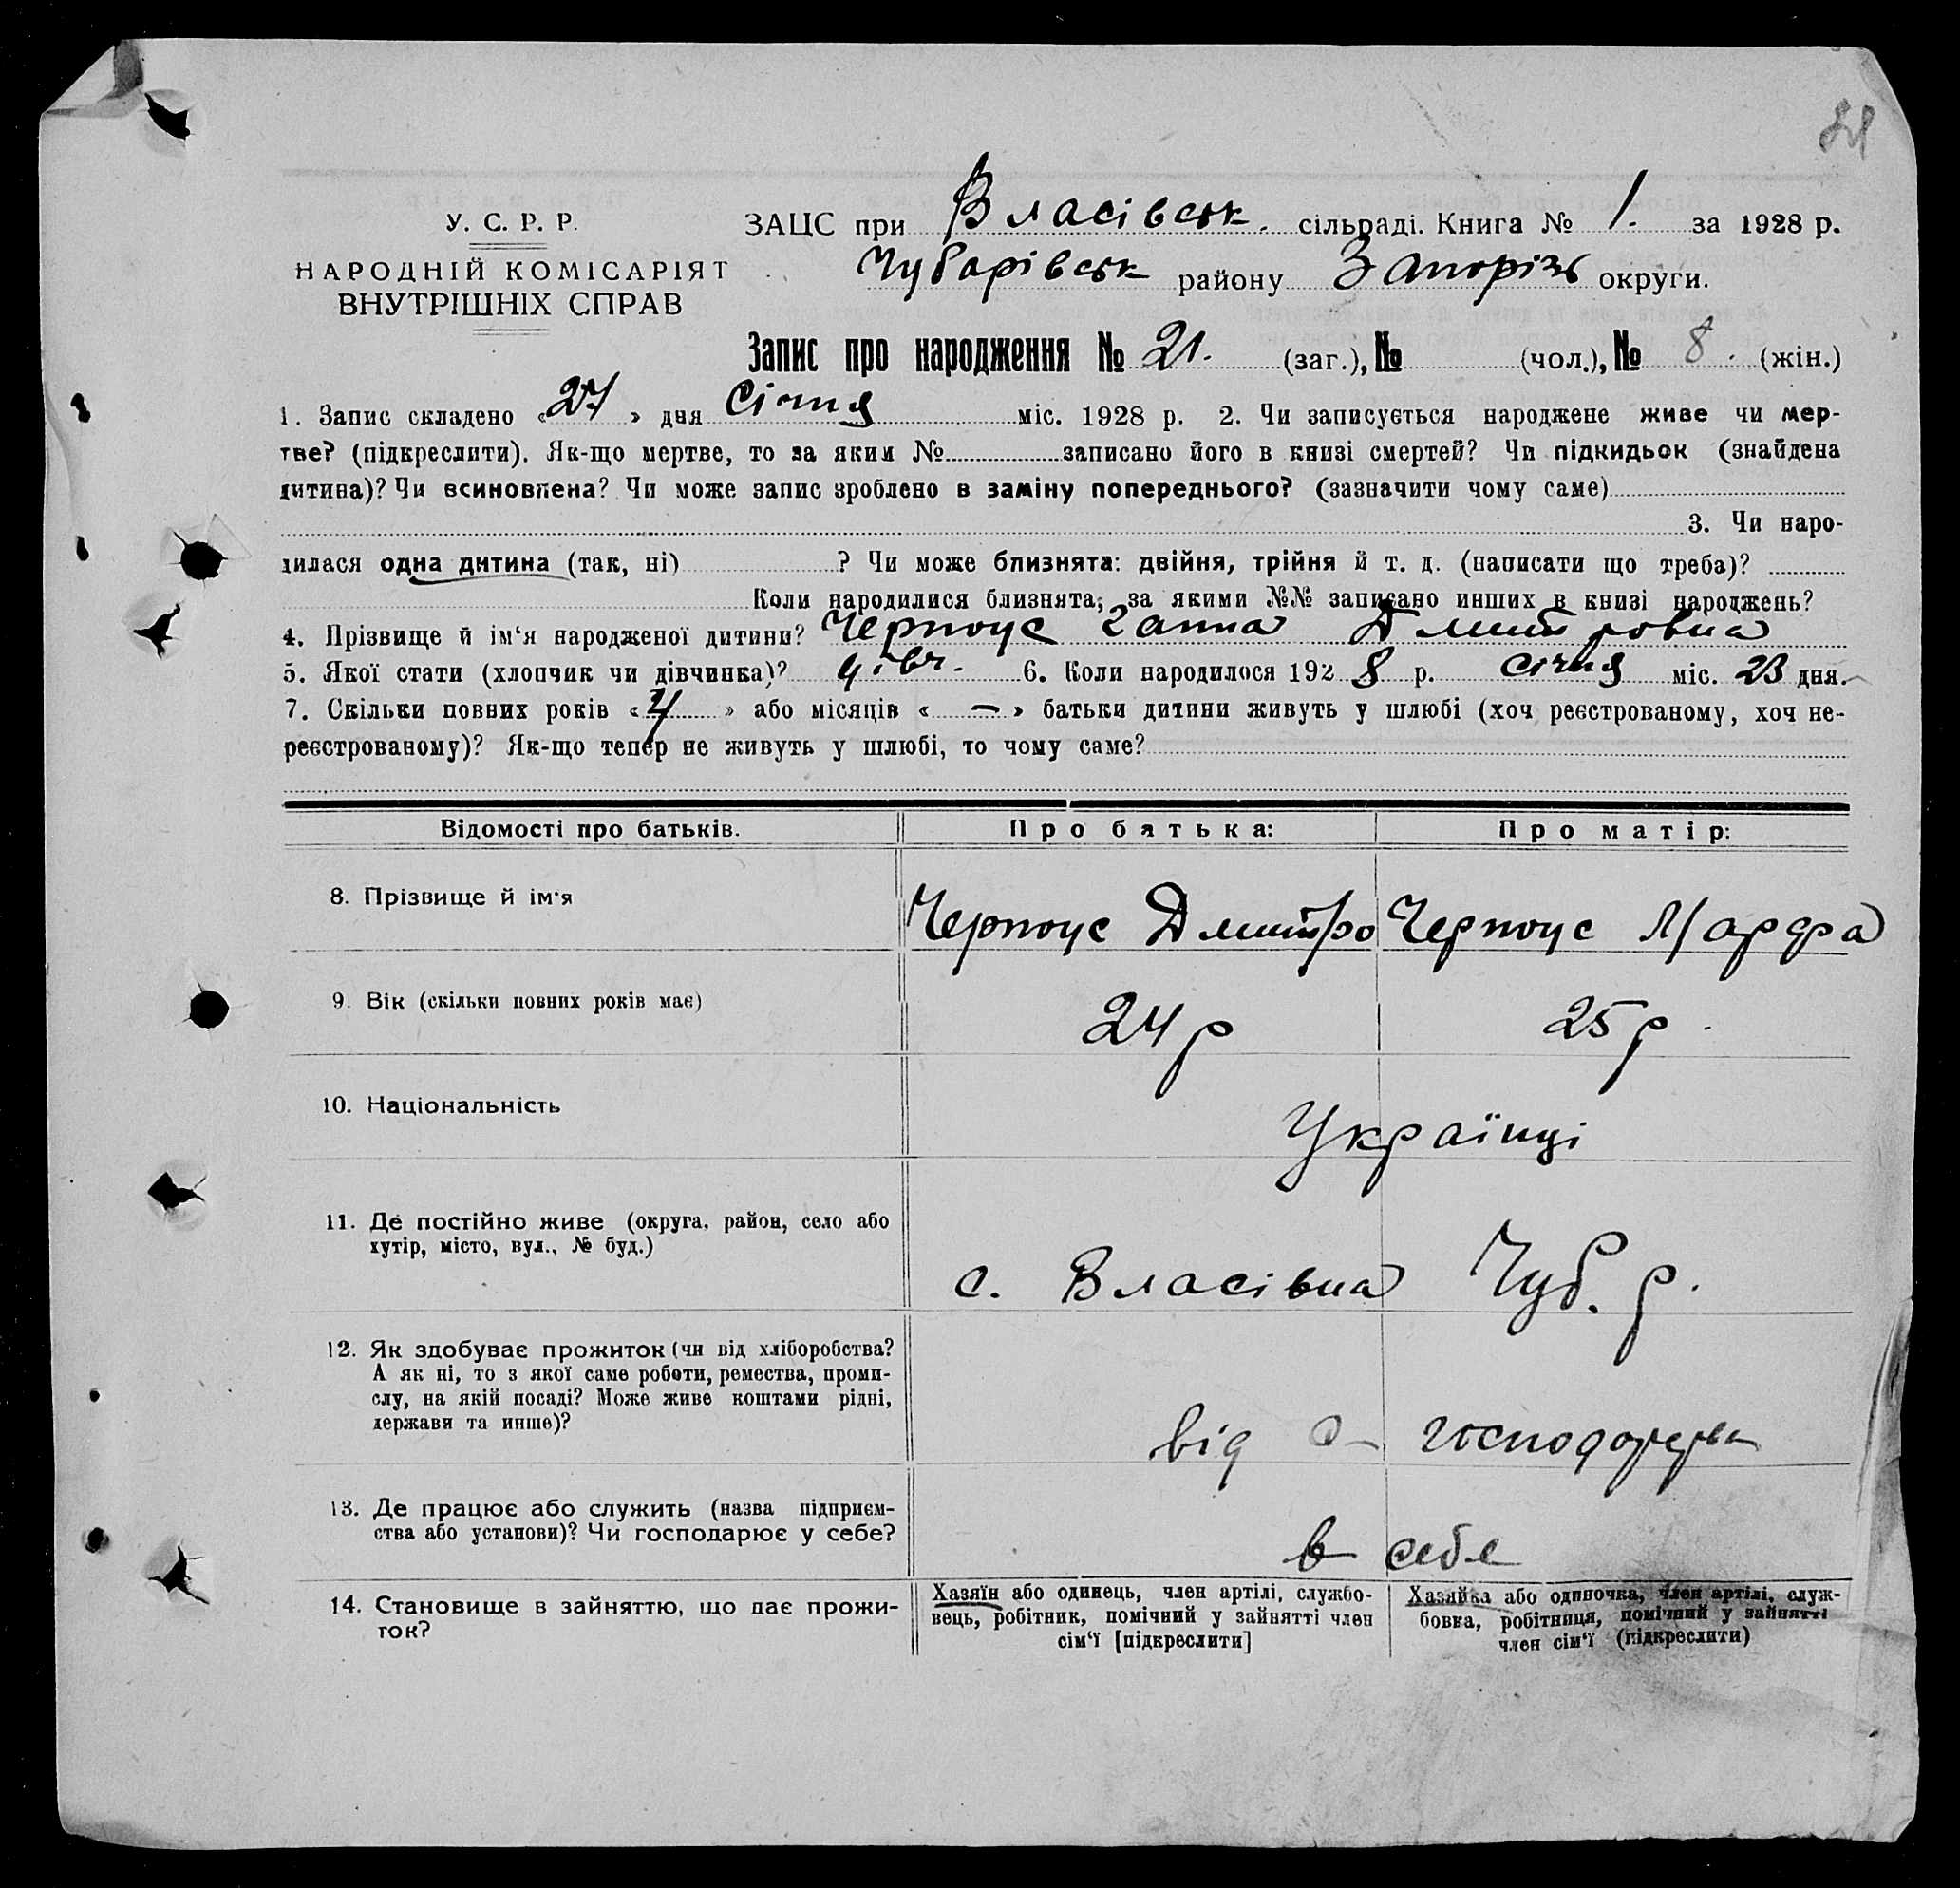 У. С. Р. Р.
НАРОДНІЙ КОМІСАРІЯТ
ВНУТРІШНІХ СПРАВ
ЗАЦС при Власівськ. сільраді. Книга № 1. за 1928 р.
Чубарівськ району Запоріз округи.
Запис про народження № 21. (заг.), № (чол.), № 8. (жін.)
1. Запис складено «27» дня Січня міс. 1928 р. 2. Чи записується народжене живе чи мер-
тве? (підкреслити). Як-що мертве, то за яким № записано його в книзі смертей? Чи підкидьок (знайдена
дитина)? Чи всиновлена? Чи може запис зроблено в заміну попереднього? (зазначити чому саме)
3. Чи наро-
дилася одна дитина (так, ні) ? Чи може близнята: двійня, трійня й т. д. (написати що треба)?
Коли народилися близнята, за якими №№ записано инших в книзі народжень?
4. Прізвище й ім‘я народженої дитини? Черноус Ганна Дмитровна
5. Якої стати (хлопчик чи дівчинка)? дівч. 6. Коли народилося 1928 р. січня міс. 23 дня.
7. Скільки повних років «4» або місяців « — » батьки дитини живуть у шлюбі (хоч реєстрованому, хоч не-
реєстрованому)? Як-що тепер не живуть у шлюбі, то чому саме?
Відомості про батьків. Про батька: Про матір:
8. Прізвище й ім‘я Черноус Дмитро Черноус Марфа
9. Вік (скільки повних років має) 24 р 25 р.
10. Національність Українці
11. Де постійно живе (округа, район, село або
хутір, місто, вул., № буд.)
с. Власівка Чуб. р.
12. Як здобуває прожиток (чи від хліборобства?
А як ні, то з якої саме роботи, ремества, проми-
слу, на якій посаді? Може живе коштами рідні,
держави та инше)?
від с-господарства
13. Де працює або служить (назва підприєм-
ства або установи)? Чи господарює у себе?
в себе
14. Становище в зайняттю, що дає прожи-
ток?
Хазяїн або одинець, член артілі, службо-
вець, робітник, помічний у зайнятті член
сім‘ї [підкреслити]
Хазяйка або одиночка, член артілі, служ-
бовка, робітниця, помічний у зайнятті
член сім‘ї (підкреслити)